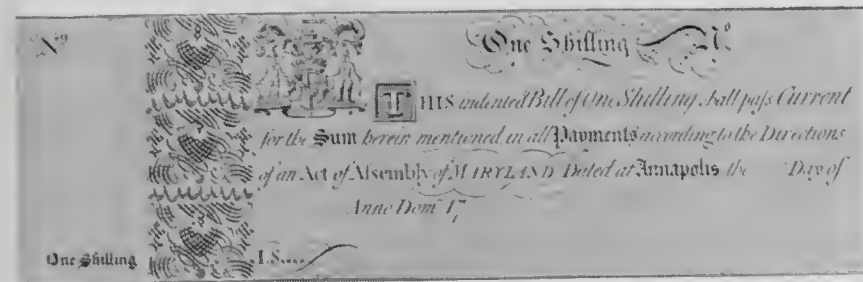 No
One Shilling No
THIS indented Bill of One Shilling shall pass Current
for the Sum herein mentioned in all Payments according to the Directions
of an Act of Assembly of MARYLAND Dated at Annapolis the Day of
Anno Dom 17
One Shilling I.S....